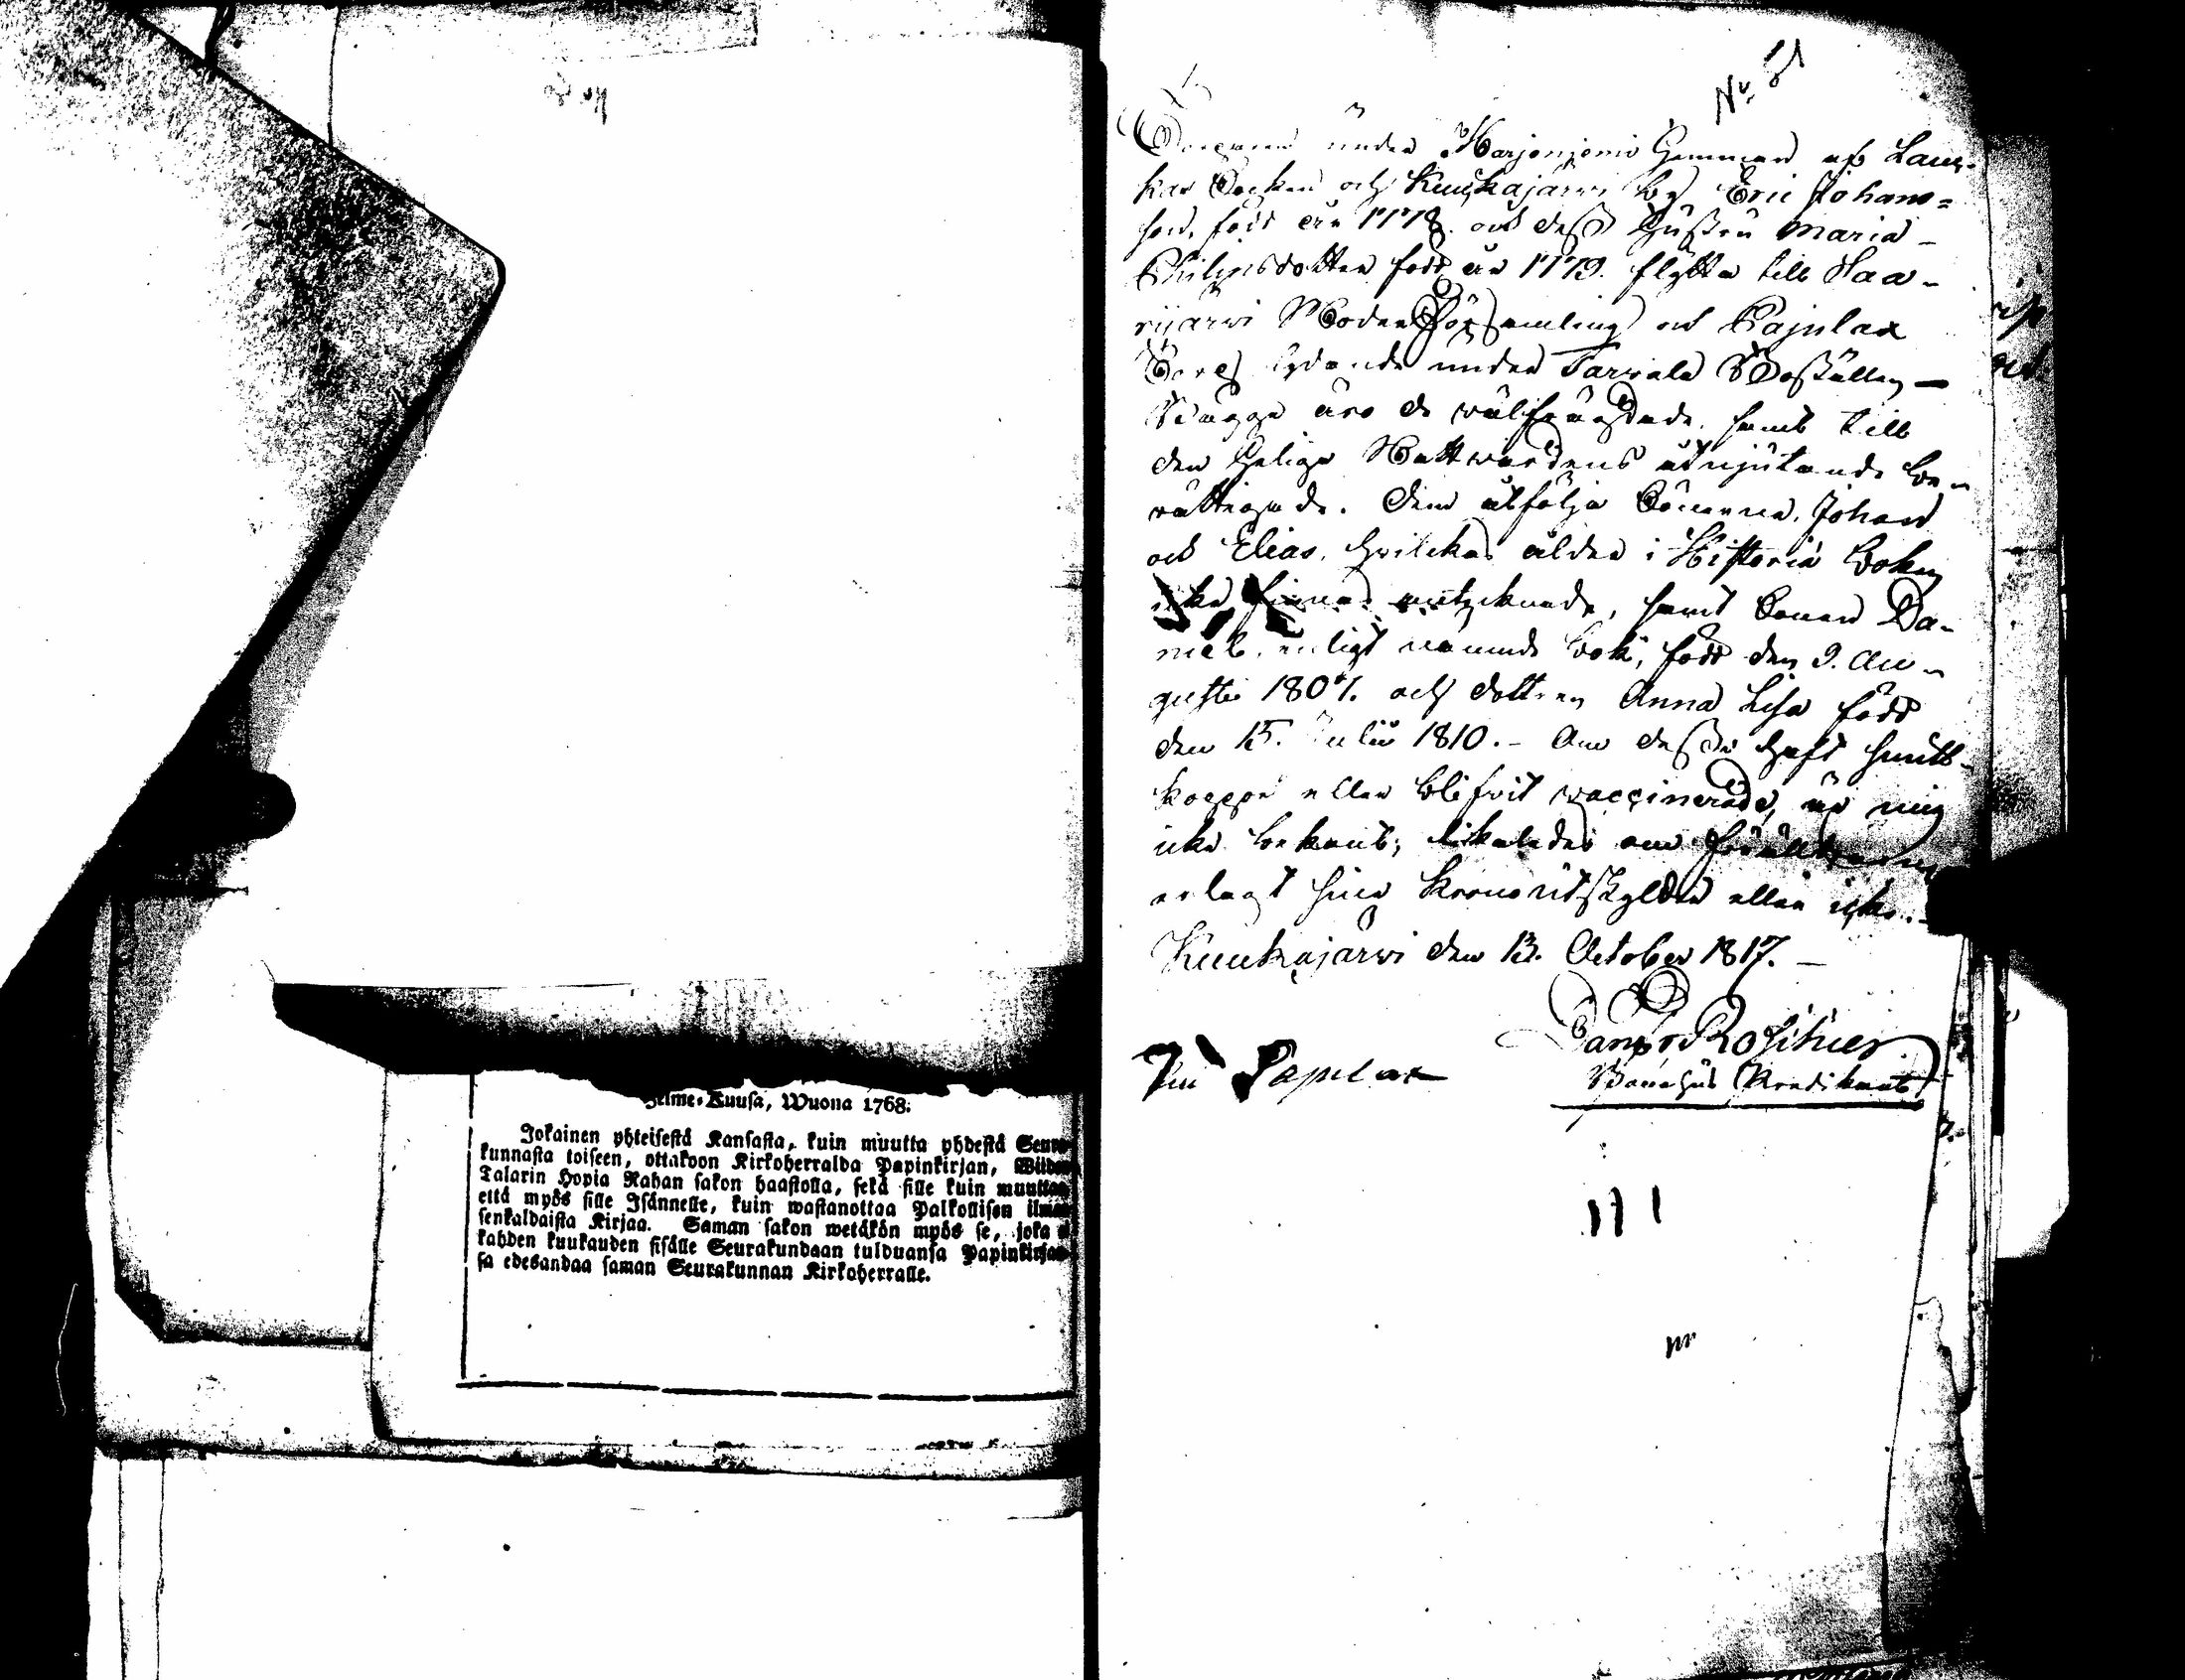 Helme-Kuusa, Wuona 1768.
Jokainen yhteisestä Kansasta, kuin muutta yhdestä Seura-
kunnasta toiseen, ottakoon Kirkoherralda Papinkirjan, Wiiden
Talarin Hopia Rahan sakon haastolla, sekä sille kuin muuttaa
että myös sille Isännelle, kuin wastanottaa Palkollisen ilman
senkaldaista Kirjaa. Saman sakon wetäkön myös se, joka ei
kahden kuukauden sisälle Seurakundaan tulduansa Papinkirjaan-
sa edesandaa saman Seurakunnan Kirkoherralle.
No 21
under Harjenjemi Hemman af Lau-
kas Socken och Kuukajärwi by Eric Johans=
son, född år 1778. och dess hustru Maria
Philipsdotter född år 1779. flytta till Saa-
rijärwi Moder Församling och Pajulax
Torp lydande under Tarwala Boställe
Bägge äro de wälfrägdade, samt till
den Heliga Nattwardens åtnjutande be-
rättigade. Dem åtfölja Sönerne, Johan
och Elias, hwilkas ålder i Historiä boken
icke finnas antecknade, samt Sonen Da-
niel, enligt nämnde bok, född den 9. Au-
gusti 1807. och dottren Anna Lisa född
den 15. Julii 1810. – Om desse haft smitt-
koppor eller blifvit vaccinerade, är mig
icke bekant; likaledes om föräldrarne
erlagt sine Kronoutskylder eller icke.
Kuukajärwi den 13. October 1817.
Rosthier
Predikant
Till Pajulax